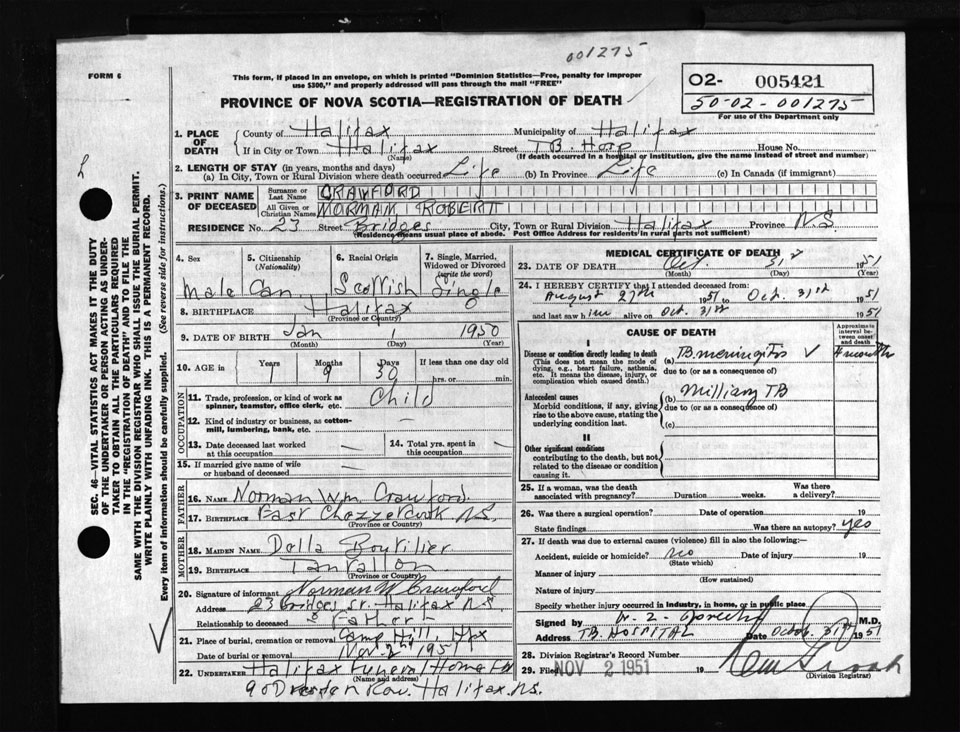 001275
FORM 6
This form, if placed in an envelope, on which is printed "Dominion Statistics—Free, penalty for improper
use $300," and properly addressed will pass through the mail "FREE"
PROVINCE OF NOVA SCOTIA—REGISTRATION OF DEATH
O2- 005421
50-02-001275
For use of the Department only
1. PLACE OF DEATH
County of Halifax Municipality of Halifax
If in City or Town Halifax Street TB. Hosp House No.
(Name) (If death occurred in a hospital or institution, give the name instead of street and number)
2. LENGTH OF STAY (in years, months and days)
(a) In City, Town or Rural Division where death occurred Life (b) In Province Life (c) In Canada (if immigrant)
3. PRINT NAME OF DECEASED
Surname or Last Name CRAWFORD
All Given or Christian Names NORMAN ROBERT
RESIDENCE No. 23 Street Bridges City, Town or Rural Division Halifax Province N.S
(Residence means usual place of abode. Post Office Address for residents in rural parts not sufficient)
4. Sex 5. Citizenship (Nationality) 6. Racial Origin 7. Single, Married, Widowed or Divorced (write the word)
Male Can Scottish Single
8. BIRTHPLACE Halifax
(Province or Country)
9. DATE OF BIRTH Jan 1 1950
(Month) (Day) (Year)
10. AGE in Years Months Days If less than one day old
1 9 30 hrs. or min.
OCCUPATION
11. Trade, profession or kind of work as spinner, teamster, office clerk, etc. Child
12. Kind of industry or business, as cotton-mill, lumbering, bank, etc.
13. Date deceased last worked at this occupation
14. Total yrs. spent in this occupation
15. If married give name of wife or husband of deceased
FATHER
16. NAME Norman Wm. Crawford
17. BIRTHPLACE East Chezzetcook N.S.
(Province or Country)
MOTHER
18. MAIDEN NAME Della Boutilier
19. BIRTHPLACE Tantallon
(Province or Country)
20. Signature of informant Norman W Crawford
Address 23 Bridges St. Halifax N.S.
Relationship to deceased Father
21. Place of burial, cremation or removal Camp Hill, Hfx
Date of burial or removal Nov. 2nd 1951
22. UNDERTAKER Halifax Funeral Home Ltd
(Name and address)
90 Dresden Row. Halifax. N.S.
MEDICAL CERTIFICATE OF DEATH
23. DATE OF DEATH Oct. 31 1951
(Month) (Day) (Year)
24. I HEREBY CERTIFY that I attended deceased from:
August 27th 1951 to Oct. 31st 1951
and last saw him alive on Oct. 31st 1951
CAUSE OF DEATH
Approximate interval between onset and death
I
Disease or condition directly leading to death (a) TB. meningitis
(This does not mean the mode of dying, e.g., heart failure, asthenia, etc. It means the disease, injury, or complication which caused death.)
due to (or as a consequence of)
Antecedent causes (b) Milliary TB
Morbid conditions, if any, giving rise to the above cause, stating the underlying condition last.
due to (or as a consequence of)
(c)
II
Other significant conditions
contributing to the death, but not related to the disease or condition causing it.
25. If a woman, was the death associated with pregnancy? Duration weeks. Was there a delivery?
26. Was there a surgical operation? Date of operation 19
State findings Was there an autopsy? yes
27. If death was due to external causes (violence) fill in also the following:—
Accident, suicide or homicide? no Date of injury 19
(State which)
Manner of injury
(How sustained)
Nature of injury
Specify whether injury occurred in industry, in home, or in public place
Signed by M.D.
Address TB. HOSPITAL Date Octob. 31st 1951
28. Division Registrar's Record Number
29. Filed NOV 2 1951 19
(Division Registrar)
SEC. 46—VITAL STATISTICS ACT MAKES IT THE DUTY
OF THE UNDERTAKER OR PERSON ACTING AS UNDER-
TAKER TO OBTAIN ALL THE PARTICULARS REQUIRED
IN THE "REGISTRATION OF DEATH" AND TO FILE THE
SAME WITH THE DIVISION REGISTRAR WHO SHALL ISSUE THE BURIAL PERMIT.
WRITE PLAINLY WITH UNFADING INK. THIS IS A PERMANENT RECORD.
Every item of information should be carefully supplied. (See reverse side for instructions.)